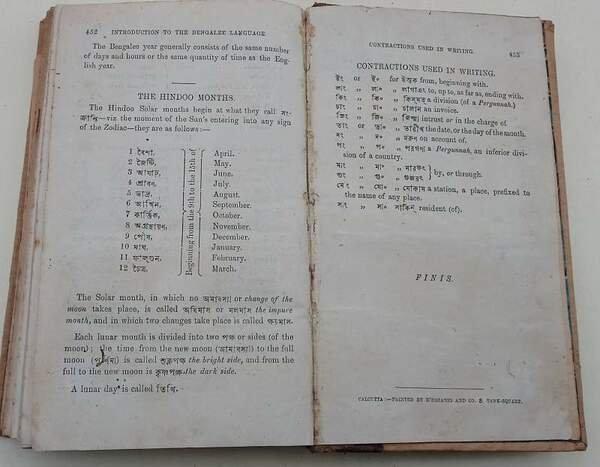 452 INTRODUCTION TO THE BENGALEE LANGUAGE
The Bengalee year generally consists of the same number
of days and hours or the same quantity of time as the Eng-
lish year.
THE HINDOO MONTHS.
The Hindoo Solar months begin at what they call সং-
ক্রান্তি—viz the moment of the Sun's entering into any sign
of the Zodiac—they are as follows:—
Beginning from the 9th to the 15th of
1 বৈশা. April.
2 জৈষ্টি. May.
3 আষাঢ়. June.
4 শ্রাবণ. July.
5 ভাদ্র. August.
6 আশ্বিন. September.
7 কার্ত্তিক. October.
8 অগ্রহায়ণ. November.
9 পৌষ. December.
10 মাঘ. January.
11 ফাল্গুন. February.
12 চৈত্র. March.
The Solar month, in which no অমাবস্যা or change of the
moon takes place, is called অধিমাস or মলমাস the impure
month, and in which two changes take place is called ক্ষয়মাস.
Each lunar month is divided into two পক্ষ or sides (of the
moon); the time from the new moon (আমাবস্যা) to the full
moon is called শুক্লপক্ষ the bright side, and from the
full to the new moon is কৃষ্ণপক্ষ the dark side.
A lunar day is called তিথি.
CONTRACTIONS USED IN WRITING. 453
CONTRACTIONS USED IN WRITING.
ইং or ই০ for ইস্তক from, beginning with.
লাং „ লা০ „ লাগাএৎ to, up to, as far as, ending with.
কিং „ কি০ „ কিসমত a division (of a Pergunnah.)
চাং „ চা০ „ চালান an invoice.
জিং „ জি০ „ জিম্মা intrust or in the charge of.
তাং „ তা০ „ তারীখ the date, or the day of the month.
দং „ দ০ „ দরুণ on account of.
পং „ প০ „ পরগণা a Pergunnah, an inferior divi-
sion of a country.
মাং „ মা০ „ মারফৎ by, or through.
গুং „ গু০ „ গুজরৎ
মোং „ মো০ „ মোকাম a station, a place, prefixed to
the name of any place.
সাং „ সা০ „ সাকিন resident (of).
FINIS.
CALCUTTA:—PRINTED BY D'ROZARIO AND CO. 8, TANK-SQUARE.